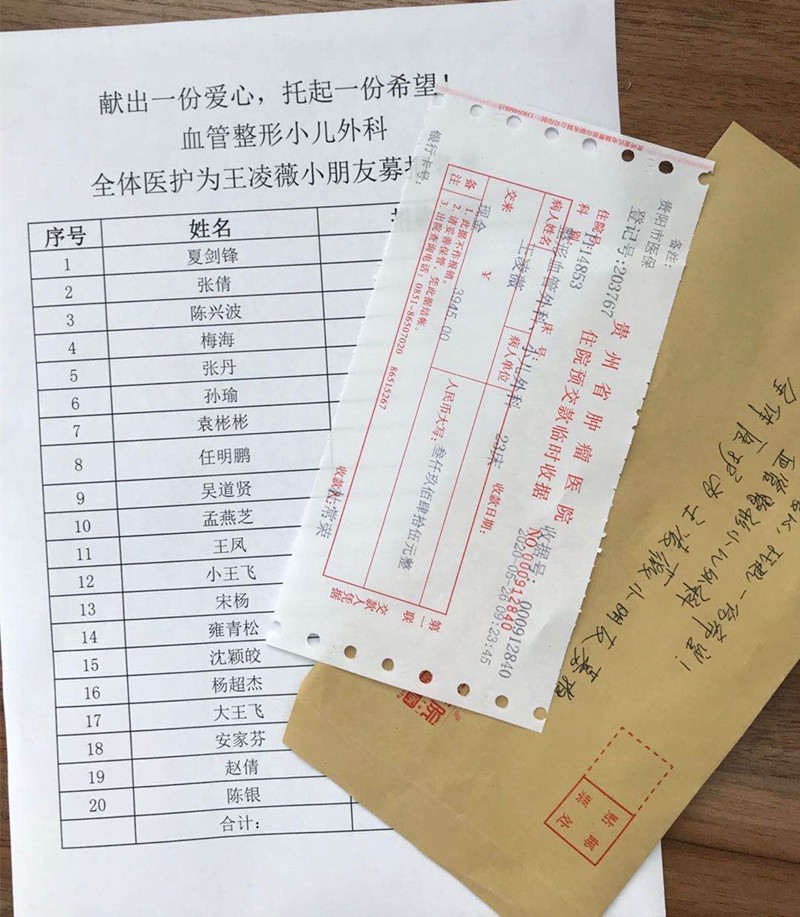 献出一份爱心，托起一份希望！
血管整形小儿外科
全体医护为王凌薇小朋友募
序号 姓名
1 夏剑锋
2 张倩
3 陈兴波
4 梅海
5 张丹
6 孙瑜
7 袁彬彬
8 任明鹏
9 吴道贤
10 孟燕芝
11 王凤
12 小王飞
13 宋杨
14 雍青松
15 沈颖皎
16 杨超杰
17 大王飞
18 安家芬
19 赵倩
20 陈银
合计：
贵州省肿瘤医院
住院预交款临时收据
备注：
贵阳市医保
登记号：203767
收据号：000912840
NO 000912840
2020-05-26 09:23:45
住院号
科别
整形血管外科、小儿外科
床号
23床
收款日期：
病人姓名
王凌薇
病人单位
交来
现金
￥ 3945.00
人民币大写：叁仟玖佰肆拾伍元整
备注
1. 此据不作报销。
2. 请妥善保管，凭此据结帐。
3. 出院查询电话：0851-86507020 86515267
银行卡号：
收款
第一联
交款人凭据
托起一份希望！
血管整形小儿外科
全体医护为王凌薇小朋友募捐
贴邮票处